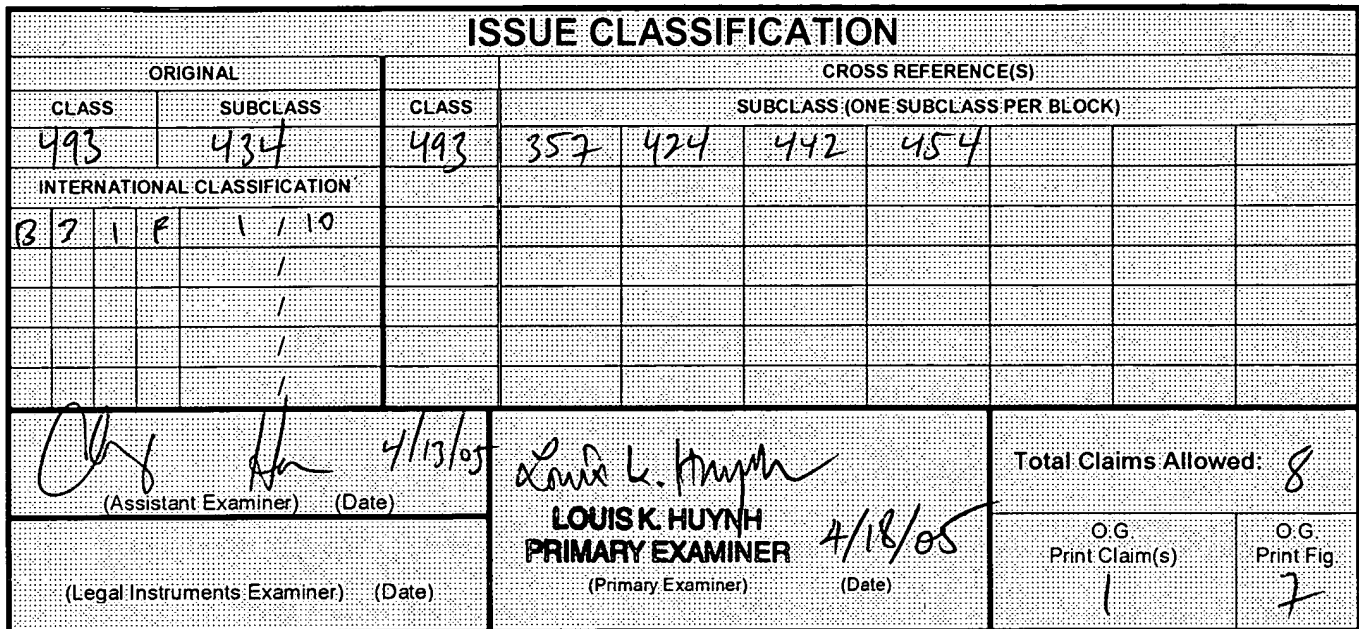 ISSUE CLASSIFICATION
ORIGINAL CROSS REFERENCE(S)
CLASS SUBCLASS CLASS SUBCLASS (ONE SUBCLASS PER BLOCK)
493 434 493 357 424 442 454
INTERNATIONAL CLASSIFICATION
B 3 1 F 1 / 10
/
/
/
/
4/13/05
(Assistant Examiner) (Date)
Louis K. Huynh
LOUIS K. HUYNH
PRIMARY EXAMINER 4/18/05
(Primary Examiner) (Date)
Total Claims Allowed: 8
O.G. Print Claim(s)
1
O.G. Print Fig
7
(Legal Instruments Examiner) (Date)